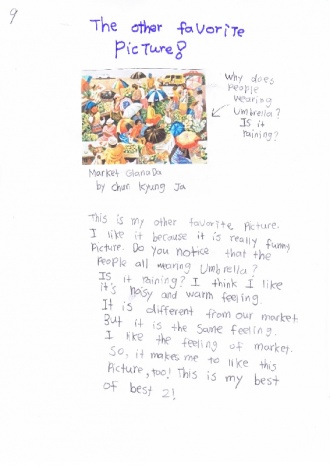 9
The other favorite
Picture8
Why does
people
wearing
Umbrella?
Is it
raining?
Market Glanada
by Chun Kyung Ja
This is my other favorite Picture.
I like it because it is really funny
Picture. Do you notice that the
People all wearing Umbrella?
Is it raining? I think I like
it's noisy and warm feeling.
It is different from our market
But it is the same feeling.
I like the feeling of market.
So, it makes me to like this
Picture, too! This is my best
of best 2!